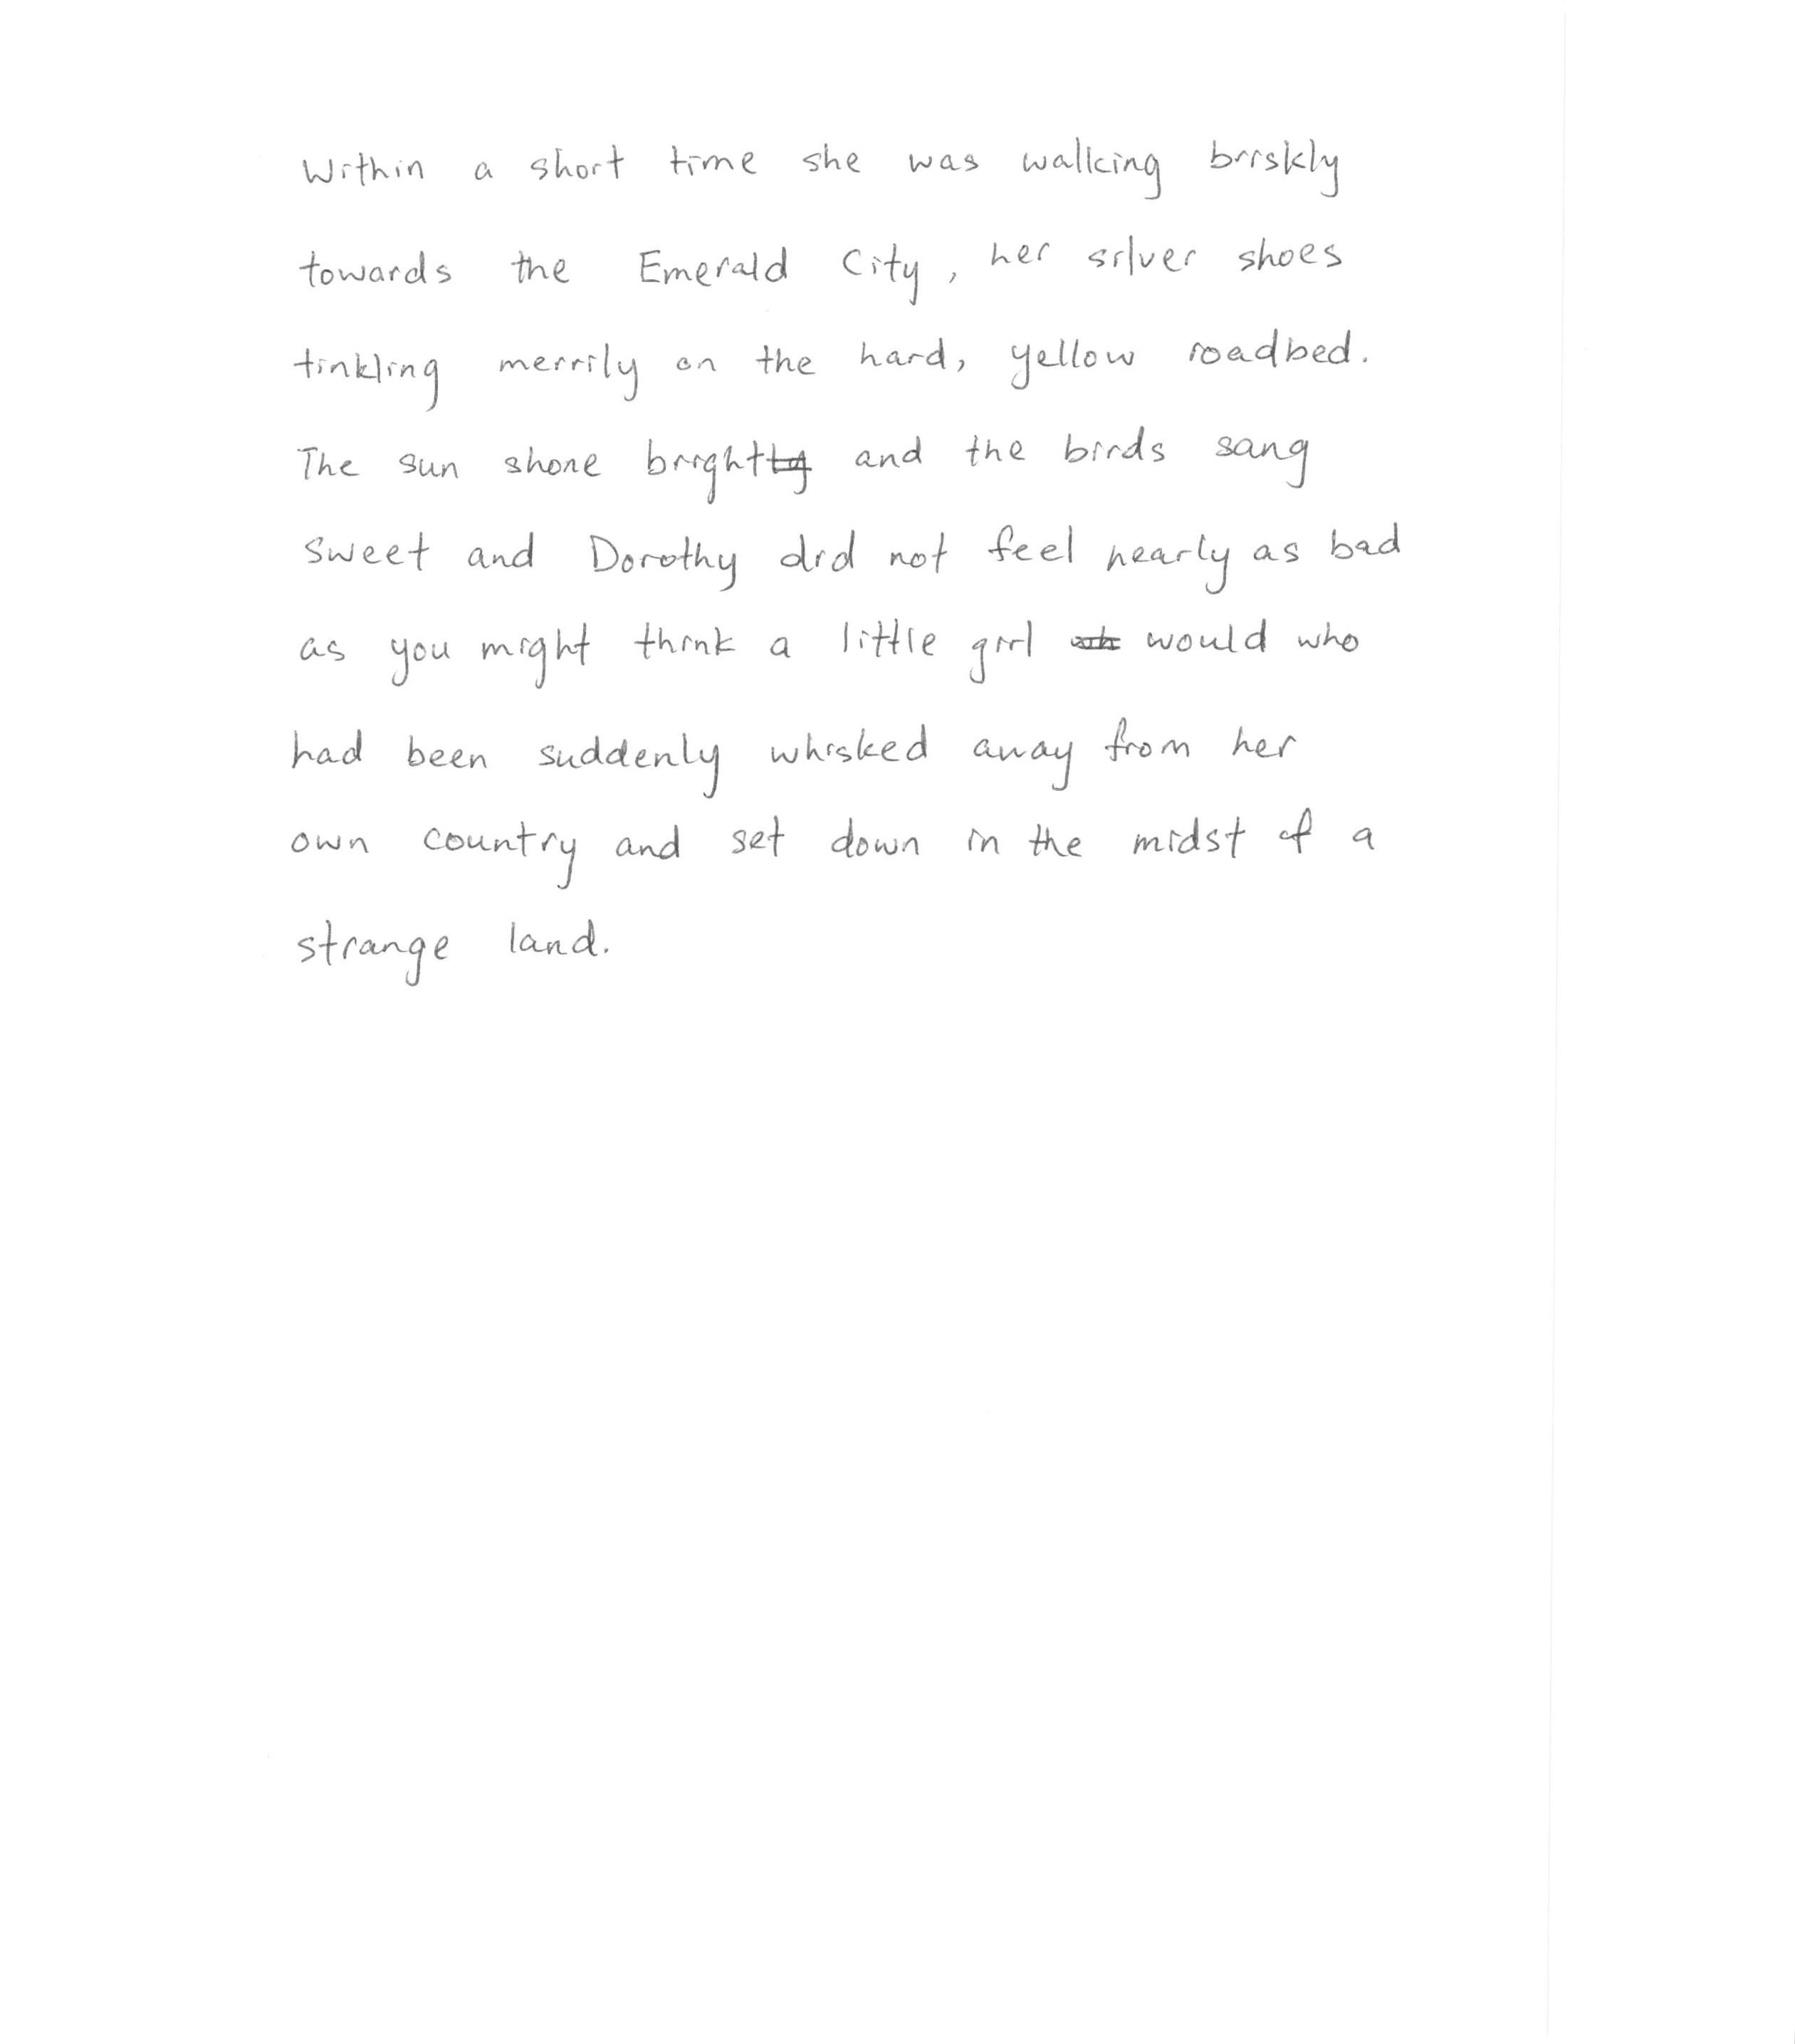 Within a short time she was walking briskly
towards the Emerald City, her silver shoes
tinkling merrily on the hard, yellow roadbed.
The sun shone bright and the birds sang
sweet and Dorothy did not feel nearly as bad
as you might think a little girl would who
had been suddenly whisked away from her
own country and set down in the midst of a
strange land.